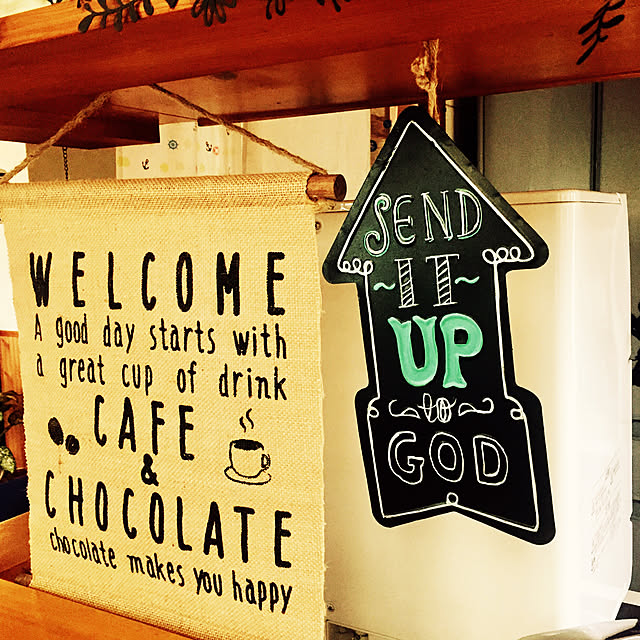 WELCOME
A good day starts with
a great cup of drink
CAFE
&
CHOCOLATE
chocolate makes you happy
SEND
IT
UP
to
GOD